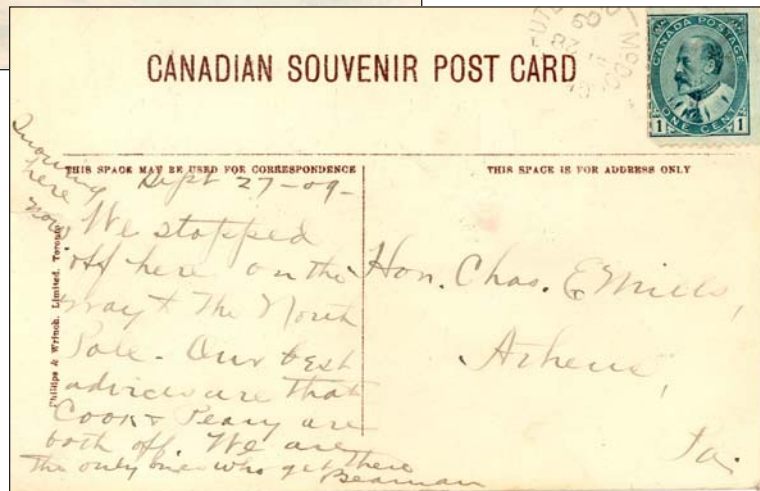 CANADIAN SOUVENIR POST CARD
CANADA POSTAGE
1 ONE CENT 1
THIS SPACE MAY BE USED FOR CORRESPONDENCE
THIS SPACE IS FOR ADDRESS ONLY
Snowing
here
now
Sept 27-09-
We stopped
off here on the
way to The North
Pole - Our best
advices are that
Cook & Peary are
both off. We are
the only ones who get there
Beaman
Phillips & Wrinch, Limited, Toronto
Hon. Chas. E Mills,
Athens,
Pa.